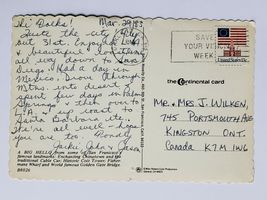 Hi Folks! Mar. 29/83
Quite the city. Fly
out 31st. Enjoyed L.A.
& beautiful coastline
all way down to San
Diego. Had a day in
Mexico. Drove through
Mtns. into desert &
spent few days in Palm
Springs & then over to
L.A. & up coast to
Santa Barbara etc.
We're all well - hope
you are too. Fondly
Jackie, John &
A BIG HELLO from some of San Francisco's
famous landmarks. Enchanting Chinatown and
traditional Cable Car; Historic Coit Tower; Fisher-
mans Wharf and World famous Golden Gate Bridge.
B8026
the Continental card
SAVE
YOUR VEHICLE
WEEK
USA
United States
Mr. & Mrs. J. WILKEN,
745 PORTSMOUTH AVE
KINGSTON ONT.
Canada K7M 1W6